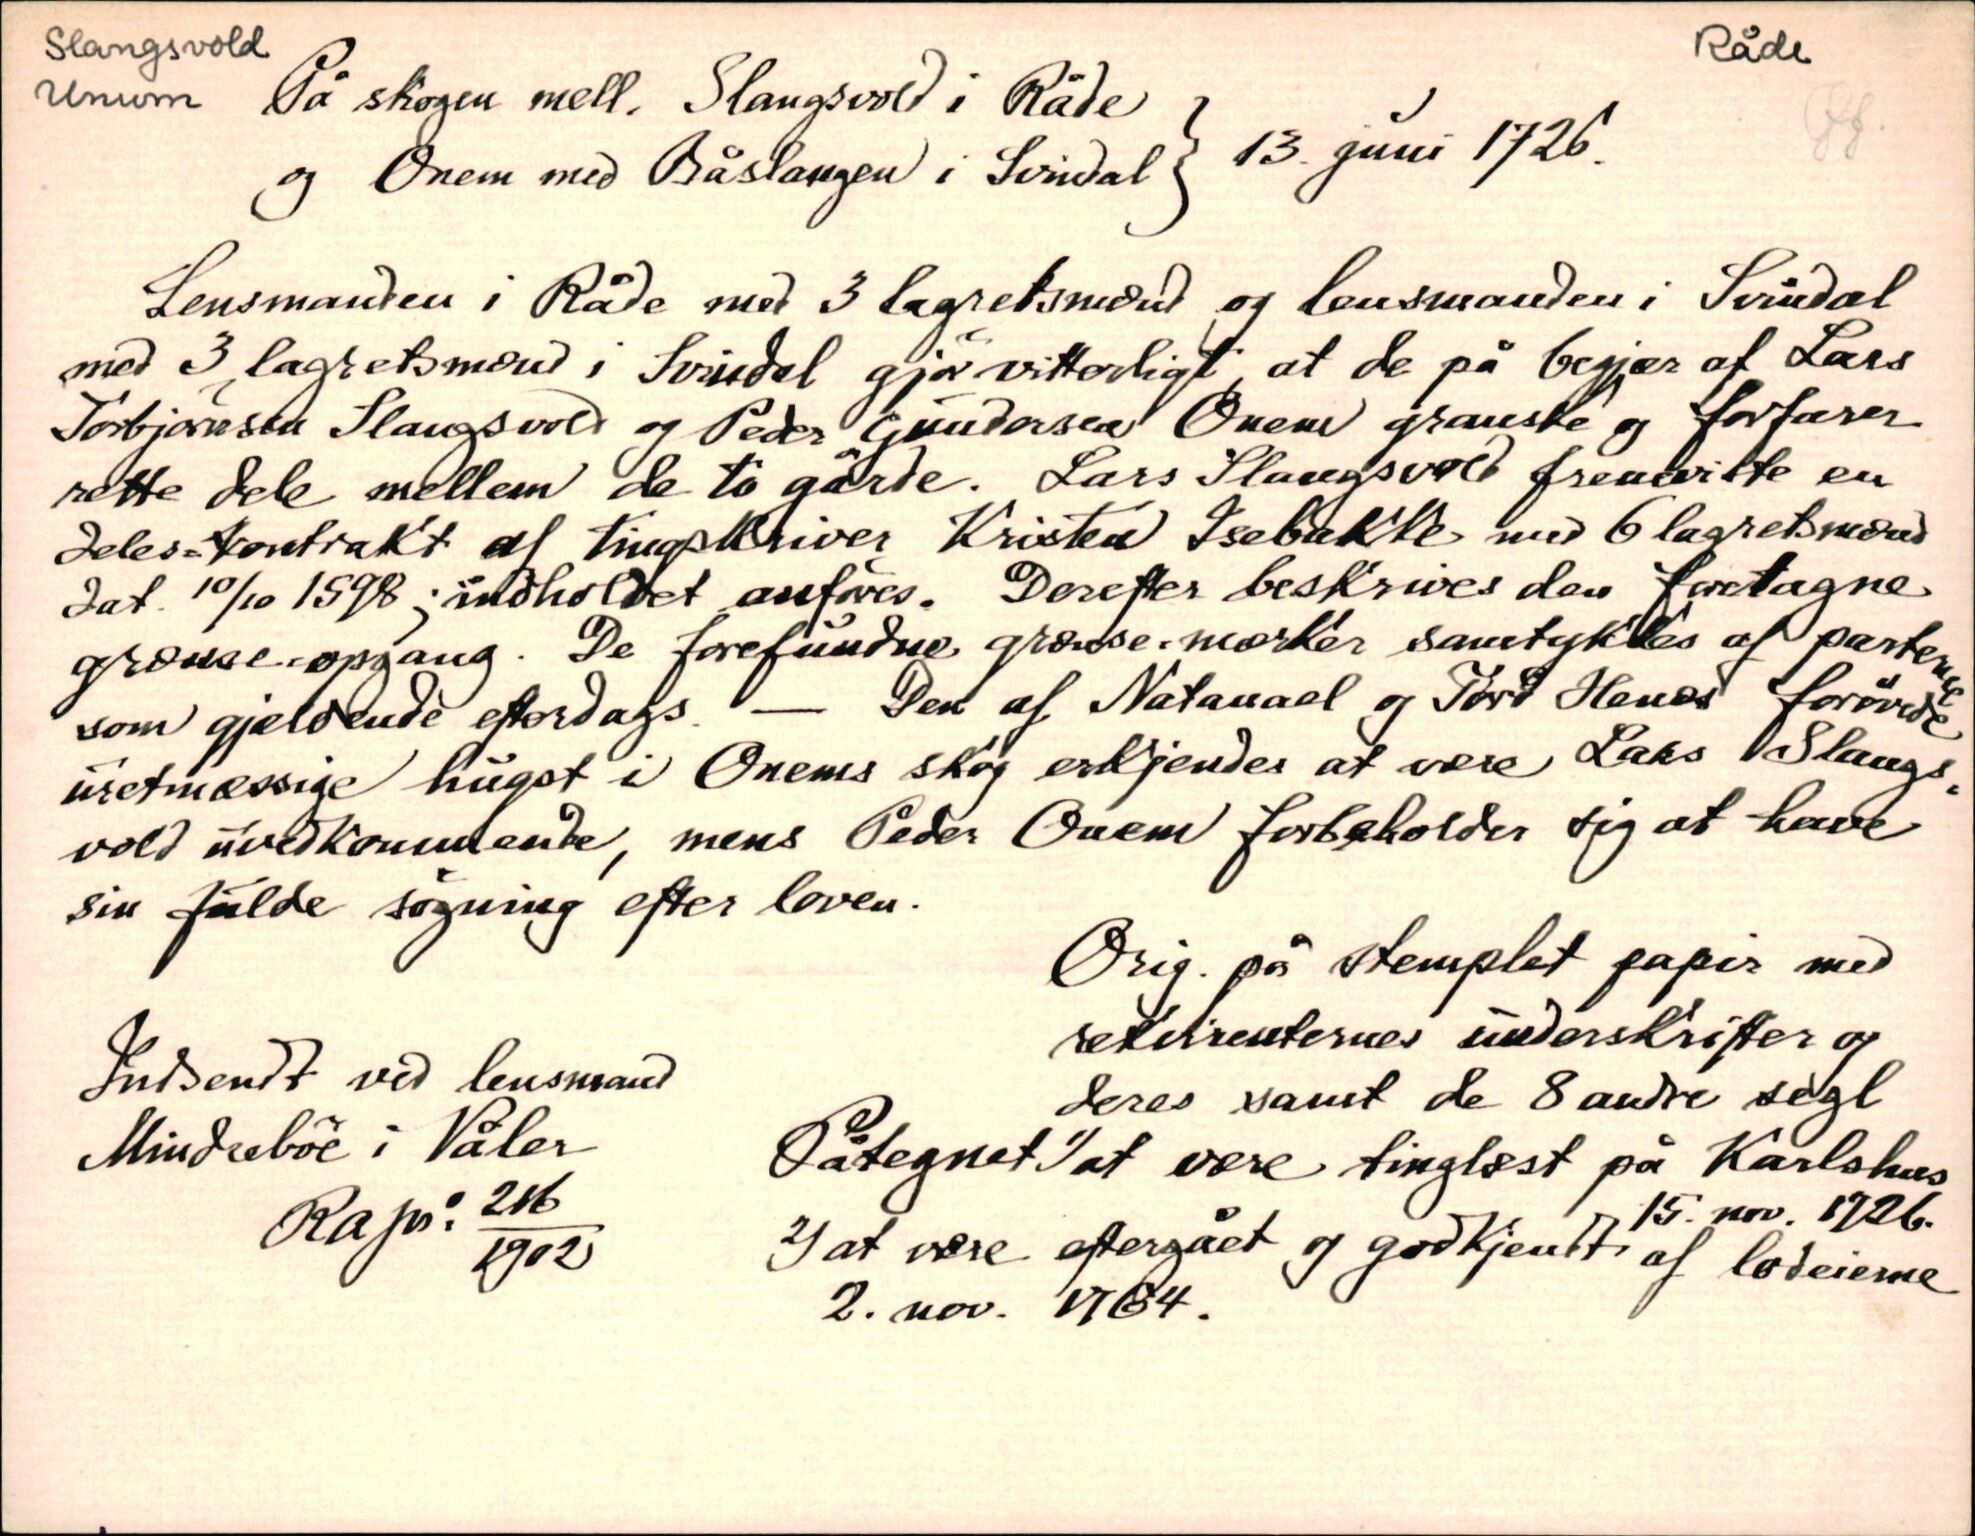 Slangsvold
Unum
Råde
På skogen mell. Slangsvold i Råde
og Onem med Båslangen i Svindal } 13. juni 1726.
Lensmanden i Råde med 3 lagretsmænd og lensmanden i Svindal
med 3 lagretsmænd i Svindal gjör vitterligt, at de på begjær af Lars
Torbjörnsen Slangsvold og Peder Gundersen Onem granske og forfarer
rette dele mellem de to gårde. Lars Slangsvold fremviste en
deles-kontrakt af tingskriver Kristen Isebakke med 6 lagretsmænd
dat. 10/10 1598; indholdet anføres. Derefter beskrives den foretagne
grænse-opgang. De forefundne grænse-mærker samtykkes af parterne
som gjældende efterdags. — Den af Natanael og Tord Henes forövede
uretmæssige hugst i Onems skog erkjendes at være Lars Slangs-
vold uvedkommende, mens Peder Onem forbeholder sig at have
sin fulde sögning efter loven.
Orig. på stemplet papir med
rekvirenternes underskrifter og
deres samt de 8 andre segl
Påtegnet 1/ at være tinglæst på Karlshus
15. nov. 1726.
2/ at være eftergået og godkjendt af lodeierne
2. nov. 1764.
Indsendt ved lensmand
Mindreböe i Våler
Ra jnr: 216/1902